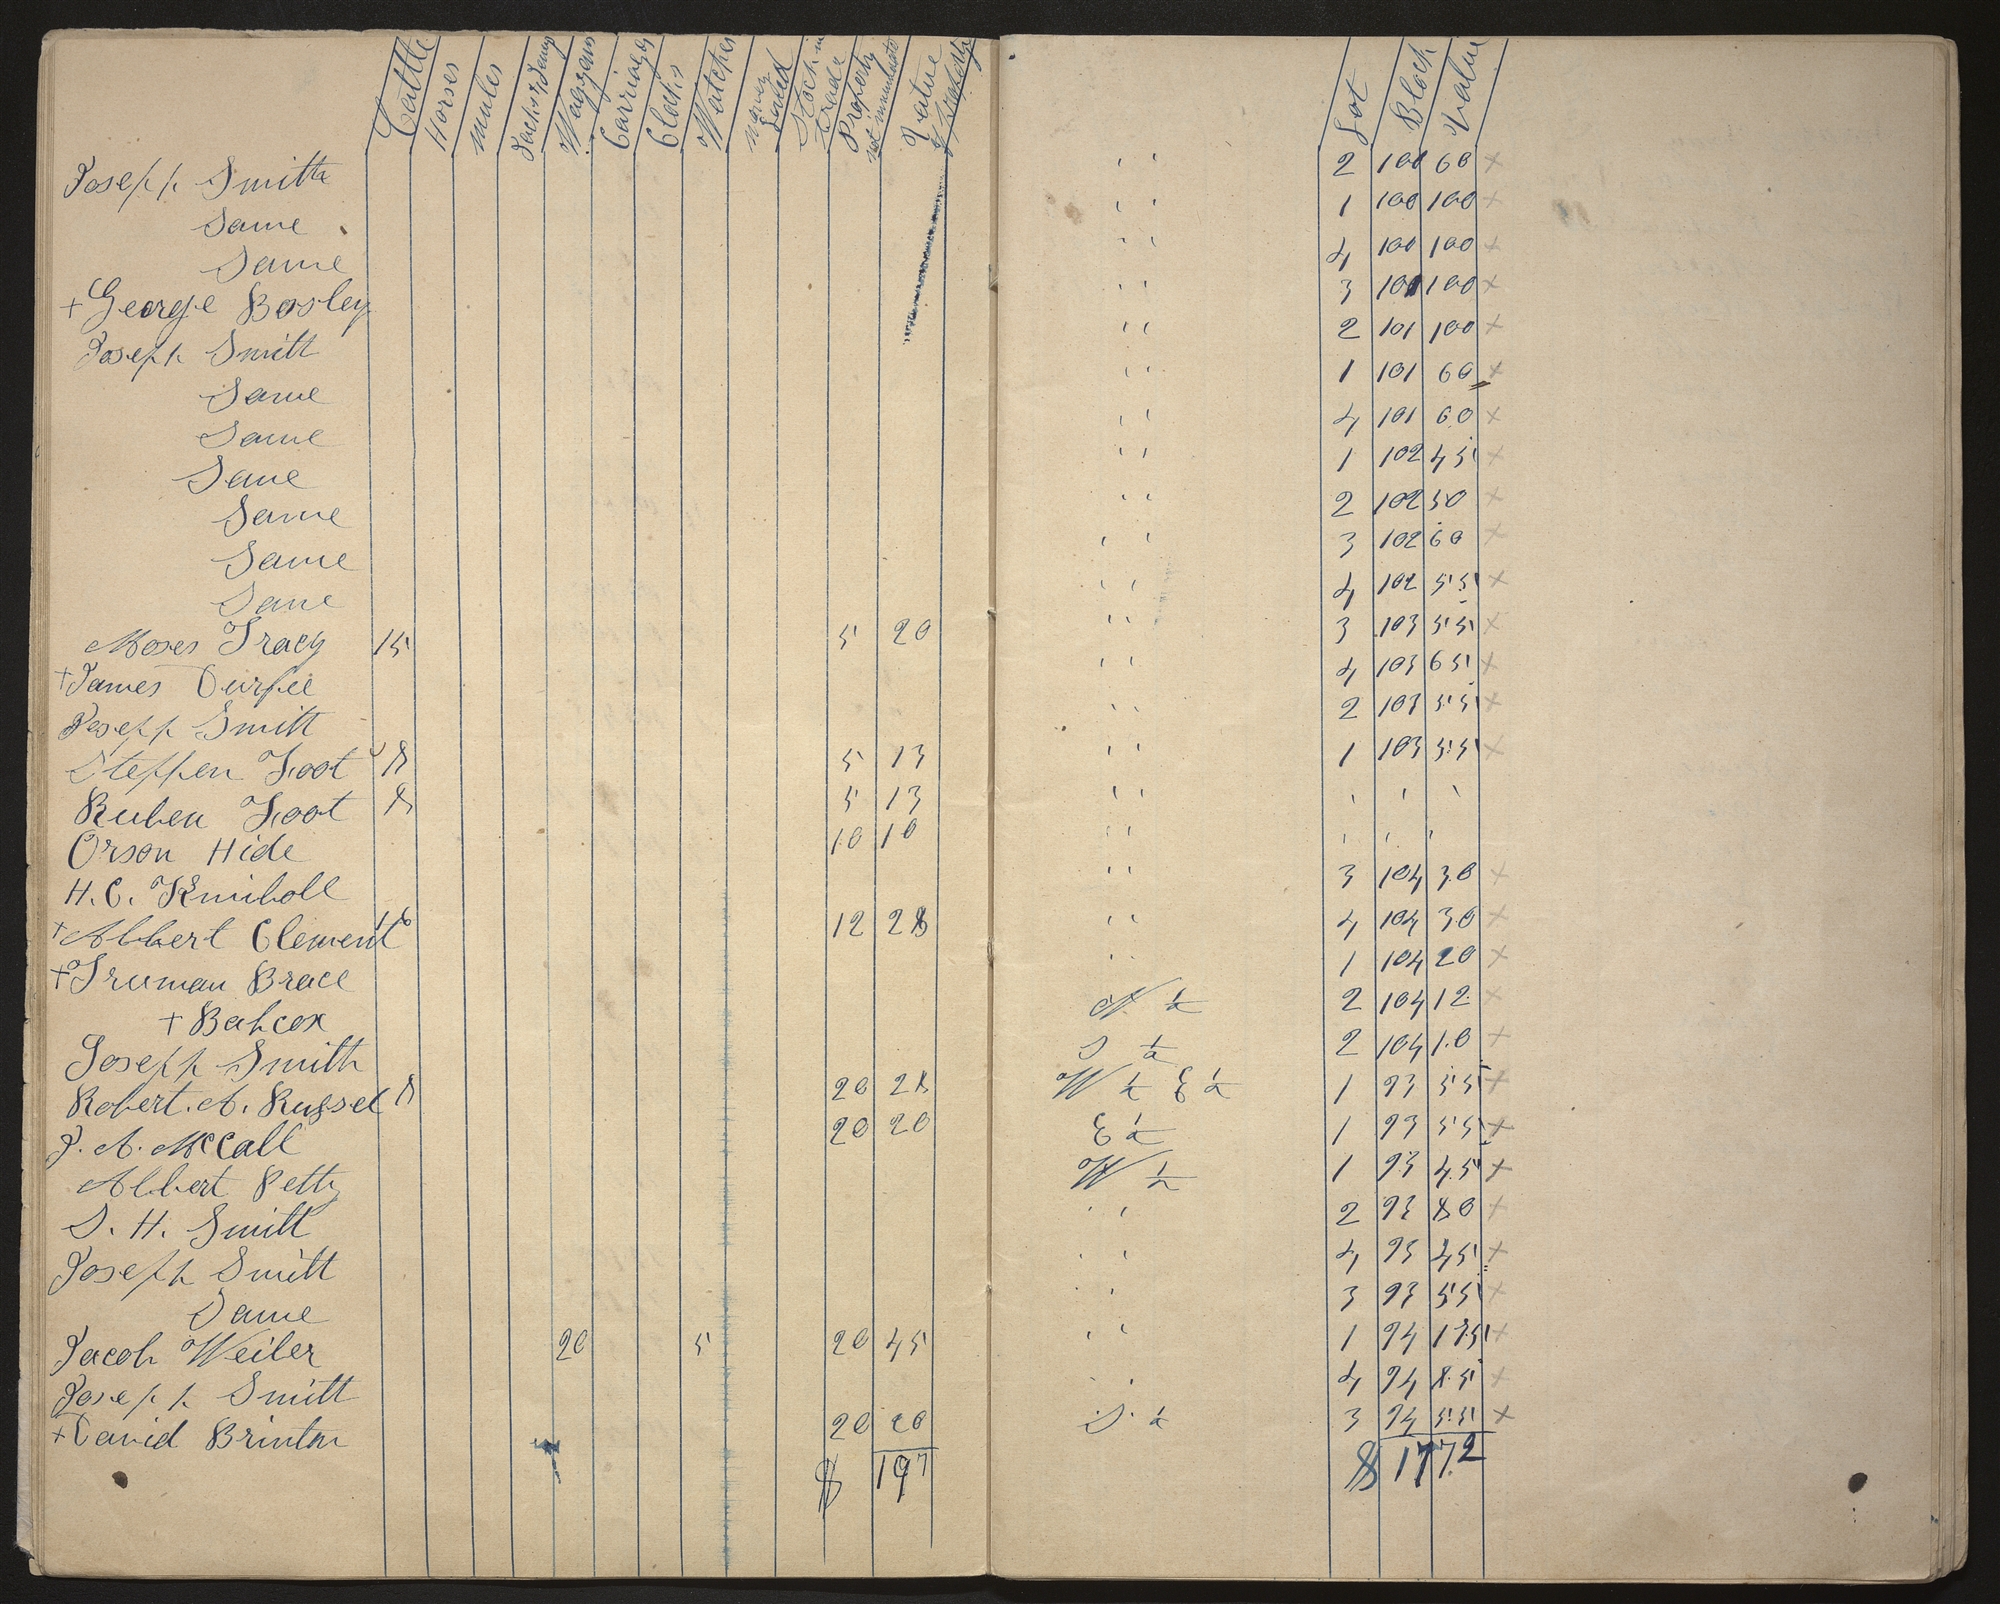 Cattle Horses Mules Jacks & Jennys Waggons Carriages Clocks Watches money loned Stock in trade Property not innumerated Value of Property Lot Block Value
Joseph Smith ' ' 2 100 60 ×
Same ' ' 1 100 100 ×
Same ' ' 4 100 100 ×
+ George Bosley ' ' 3 101 100 ×
Joseph Smith ' ' 2 101 100 ×
Same ' ' 1 101 60 ×
Same ' ' 4 101 60 ×
Same ' ' 1 102 45 ×
Same ' ' 2 102 50 ×
Same ' ' 3 102 60 ×
Same ' ' 4 102 55 ×
Moses Tracy 15 5 20 ' ' 3 103 55 ×
+ James Durfee ' ' 4 103 65 ×
Joseph Smith ' ' 2 103 55 ×
Stephen Foot 8 5 13 ' ' 1 103 55 ×
Ruben Foot 8 5 13 ' ' ' ' '
Orson Hide 10 10 ' ' ' ' '
H. C. Kimboll ' ' 3 104 30 ×
+ Albert Clement 16 12 28 ' ' 4 104 30 ×
+ Truman Brace ' ' 1 104 20 ×
+ Babcox N. ½ 2 104 12 ×
Joseph Smith S ½ 2 104 10 ×
Robert. A. Russel 8 20 28 W ½ E ½ 1 93 55 ×
J. A. McCall 20 20 E ½ 1 93 55 ×
Albert Petty W ½ 1 93 45 ×
S. H. Smith ' ' 2 93 80 ×
Joseph Smith ' ' 4 93 45 ×
Same ' ' 3 93 55 ×
Jacob Weiler 20 5 20 45 ' ' 1 94 175 ×
Joseph Smith ' ' 4 94 85 ×
+ David Brinton 20 20 S. ½ 3 94 55 ×
$ 197 $ 1772